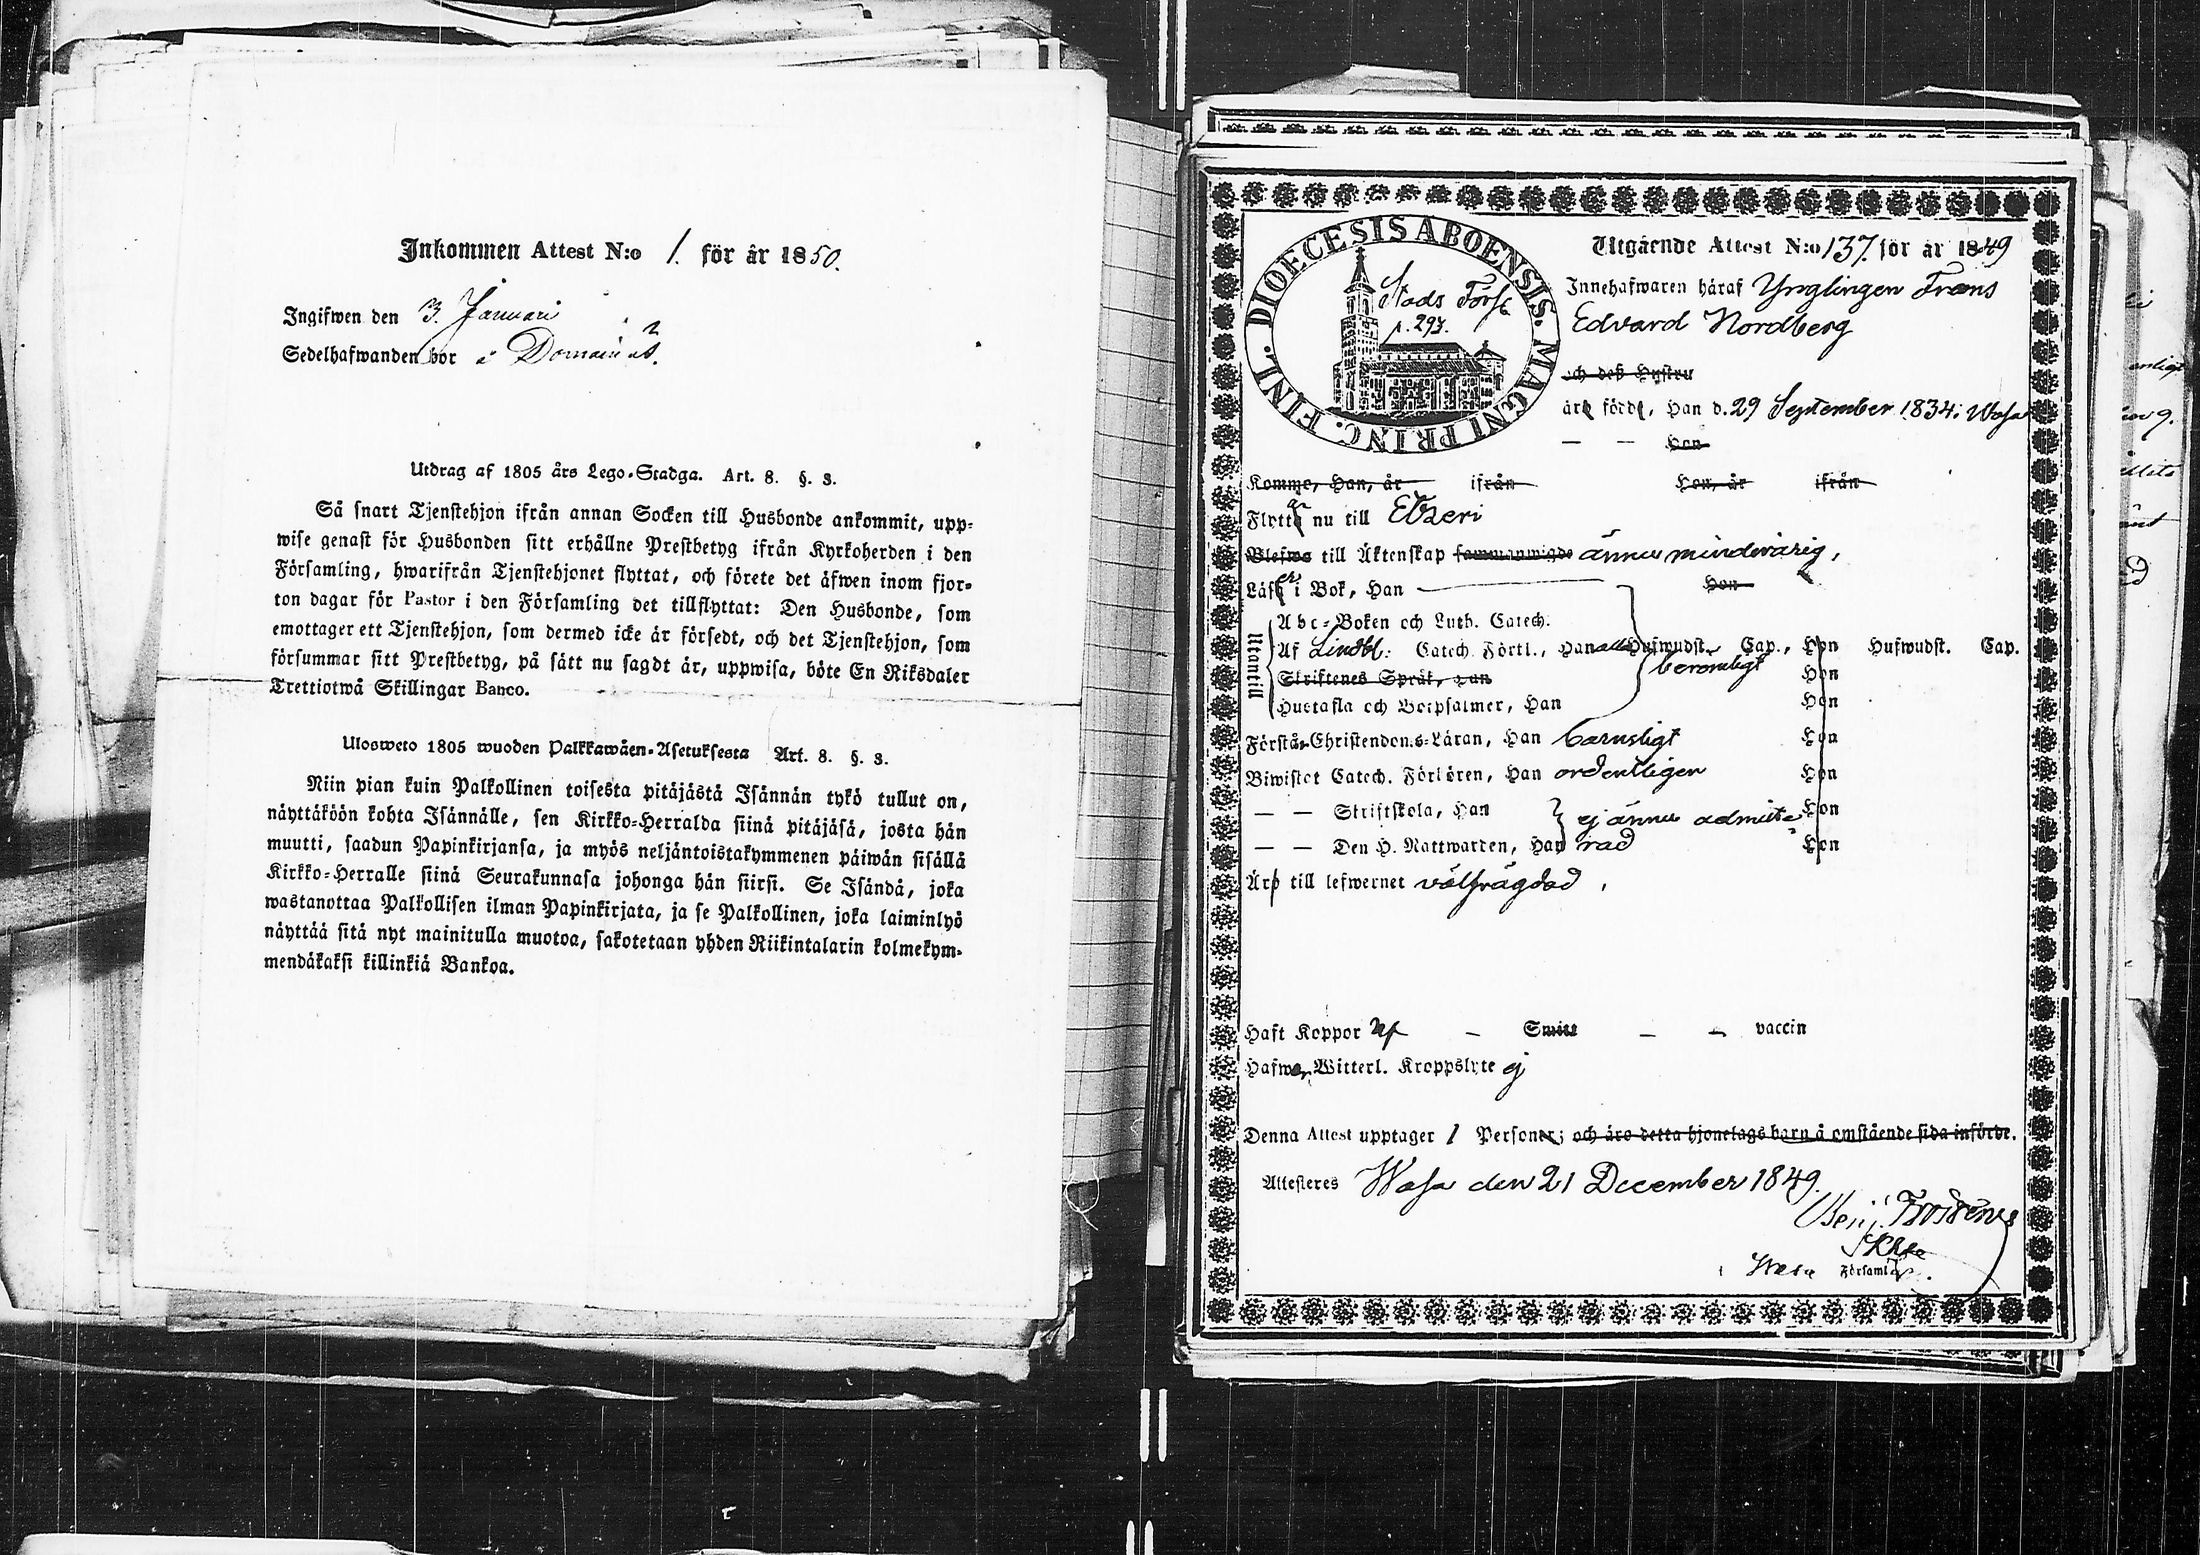 Inkommen Attest N:o 1. för år 1850.
Ingifwen den 3. Januari
Sedelhafwanden bor i
Utdrag af 1805 års Lego-Stadga. Art. 8. §. 3.
Så snart Tjenstehjon ifrån annan Socken till Husbonde ankommit, upp-
wise genast för Husbonden sitt erhållne Prestbetyg ifrån Kyrkoherden i den
Församling, hwarifrån Tjenstehjonet flyttat, och förete det äfwen inom fjor-
ton dagar för Pastor i den Församling det tillflyttat: Den Husbonde, som
emottager ett Tjenstehjon, som dermed icke är försedt, och det Tjenstehjon, som
försummar sitt Prestbetyg, på sätt nu sagdt är, uppwisa, böte En Riksdaler
Trettiotwå Skillingar Banco.
Ulosweto 1805 wuoden Palkkawäen-Asetuksesta Art. 8. §. 3.
Niin pian kuin Palkollinen toisesta pitäjästä Isännän tykö tullut on,
näyttäköön kohta Isännälle, sen Kirkko-Herralda siinä pitäjäsä, josta hän
muutti, saadun Papinkirjansa, ja myös neljäntoistakymmenen päiwän sisällä
Kirkko-Herralle siinä Seurakunnasa johonga hän siirsi. Se Isändä, joka
wastanottaa Palkollisen ilman Papinkirjata, ja se Palkollinen, joka laiminlyö
näyttää sitä nyt mainitulla muotoa, sakotetaan yhden Riikintalarin kolmekym-
mendäkaksi killinkiä Bankoa.
DIOECESIS ABOENSIS. MAGNI PRINC. FINL.
Stads Förs
p. 293.
Utgående Attest N:o 137 för år 1849
Innehafwaren häraf Ynglingen Frans
Edvard Nordberg
och deß Hustru
är född, Han d. 29 September 1834 i Wasa
— — Hon
Komme, Han, år ifrån Hon, år ifrån
Flyttar nu till Etseri
Blefwo till Äktenskap sammanwigde ännu minderårig,
Läser i Bok, Han Hon
Utantill
Abc-Boken och Luth. Catech.
Af Lindbl: Catech. Förkl., Han alla Hufwudst. Cap., Hon Hufwudst. Cap.
berömligt
Skriftenes Språk, Han Hon
Hustafla och Botpsalmer, Han Hon
Förstår Christendoms-Läran, Han barnsligt Hon
Biwistat Catech. Förhören, Han ordentligen Hon
— — Skriftskola, Han ej ännu admitte- Hon
— — Den H. Nattwarden, Han rad Hon
Är till lefwernet välfrägdad,
Haft Koppor — Smitt — — vaccin
Hafwer Witterl. Kroppslyte ej
Denna Attest upptager 1 Personer; och äro detta hjonelags barn å omstående sida införde.
Attesteres Wasa den 21 December 1849.
Benj. Frosterus
i Wasa Församl.